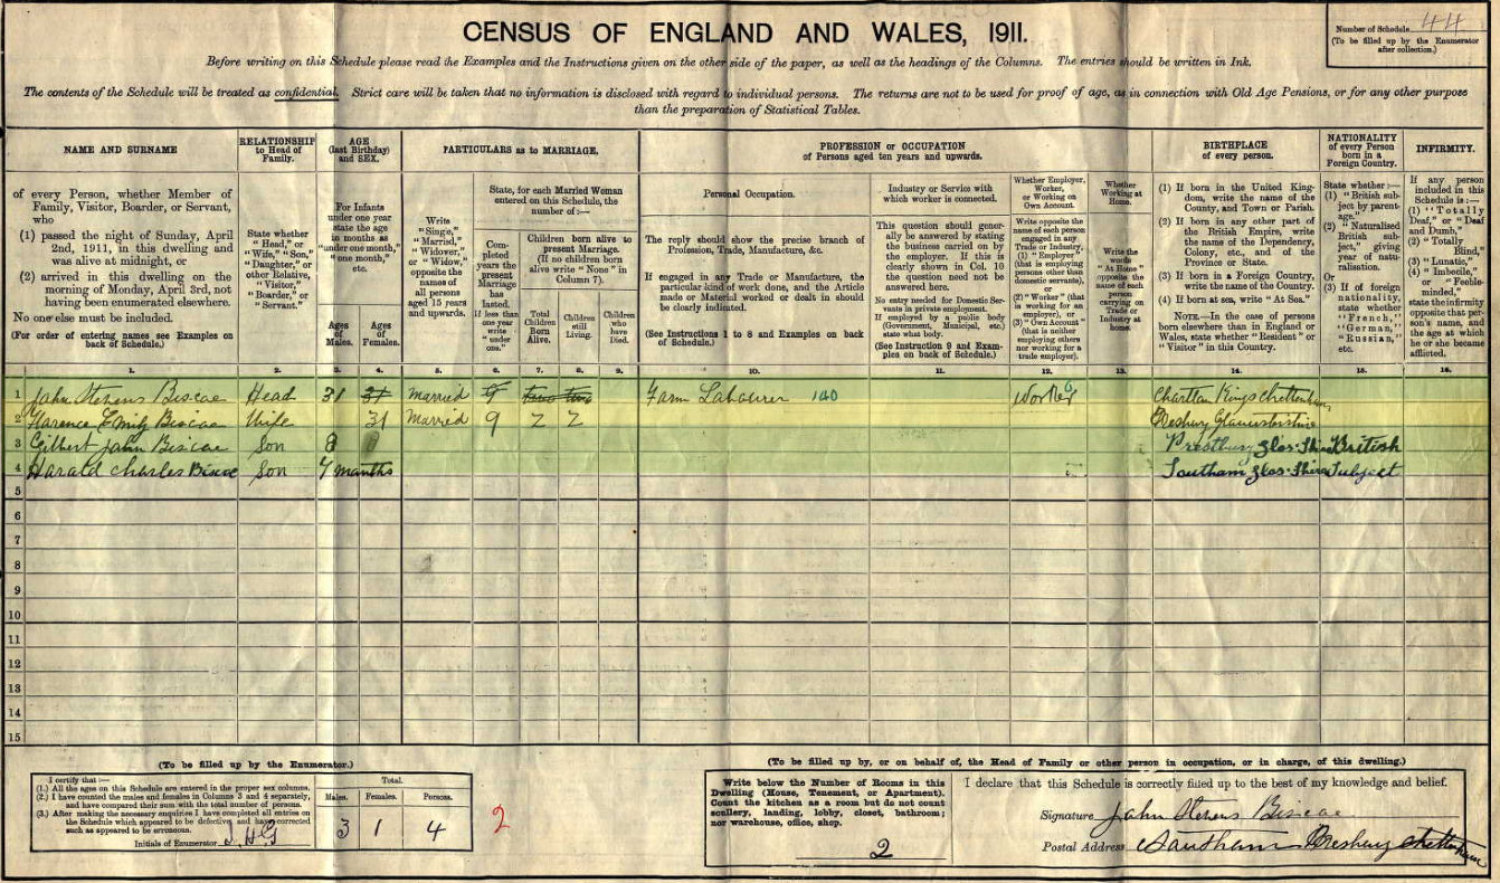 CENSUS OF ENGLAND AND WALES, 1911.
Number of Schedule 44
(To be filled up by the Enumerator
after collection.)
Before writing on this Schedule please read the Examples and the Instructions given on the other side of the paper, as well as the headings of the Columns. The entries should be written in Ink.
The contents of the Schedule will be treated as confidential. Strict care will be taken that no information is disclosed with regard to individual persons. The returns are not to be used for proof of age, as in connection with Old Age Pensions, or for any other purpose
than the preparation of Statistical Tables.
NAME AND SURNAME
of every Person, whether Member of
Family, Visitor, Boarder, or Servant,
who
(1) passed the night of Sunday, April
2nd, 1911, in this dwelling and
was alive at midnight, or
(2) arrived in this dwelling on the
morning of Monday, April 3rd, not
having been enumerated elsewhere.
No one else must be included.
(For order of entering names see Examples on
back of Schedule.)
RELATIONSHIP
to Head of
Family.
State whether
"Head," or
"Wife," "Son,"
"Daughter," or
other Relative,
"Visitor,"
"Boarder," or
"Servant."
AGE
(last Birthday)
and SEX.
For Infants
under one year
state the age
in months as
"under one month,"
"one month,"
etc.
Ages
of
Males.
Ages
of
Females.
PARTICULARS as to MARRIAGE.
Write
"Single,"
"Married,"
"Widower,"
or "Widow,"
opposite the
names of
all persons
aged 15 years
and upwards.
State, for each Married Woman
entered on this Schedule, the
number of :—
Com-
pleted
years the
present
Marriage
has
lasted.
If less than
one year
write
"under
one."
Children born alive to
present Marriage.
(If no children born
alive write "None" in
Column 7).
Total
Children
Born
Alive.
Children
still
Living.
Children
who
have
Died.
PROFESSION or OCCUPATION
of Persons aged ten years and upwards.
Personal Occupation.
The reply should show the precise branch of
Profession, Trade, Manufacture, &c.
If engaged in any Trade or Manufacture, the
particular kind of work done, and the Article
made or Material worked or dealt in should
be clearly indicated.
(See Instructions 1 to 8 and Examples on back
of Schedule.)
Industry or Service with
which worker is connected.
This question should gener-
ally be answered by stating
the business carried on by
the employer. If this is
clearly shown in Col. 10
the question need not be
answered here.
No entry needed for Domestic Ser-
vants in private employment.
If employed by a public body
(Government, Municipal, etc.)
state what body.
(See Instruction 9 and Exam-
ples on back of Schedule.)
Whether Employer,
Worker,
or Working on
Own Account.
Write opposite the
name of each person
engaged in any
Trade or Industry,
(1) "Employer"
(that is employing
persons other than
domestic servants),
or
(2) "Worker" (that
is working for an
employer), or
(3) "Own Account"
(that is neither
employing others
nor working for a
trade employer).
Whether
Working at
Home.
Write the
words
"At Home"
opposite the
name of each
person
carrying on
Trade or
Industry at
home.
BIRTHPLACE
of every person.
(1) If born in the United King-
dom, write the name of the
County, and Town or Parish.
(2) If born in any other part of
the British Empire, write
the name of the Dependency,
Colony, etc., and of the
Province or State.
(3) If born in a Foreign Country,
write the name of the Country.
(4) If born at sea, write "At Sea."
NOTE.—In the case of persons
born elsewhere than in England or
Wales, state whether "Resident" or
"Visitor" in this Country.
NATIONALITY
of every Person
born in a
Foreign Country.
State whether :—
(1) "British sub-
ject by parent-
age."
(2) "Naturalised
British sub-
ject," giving
year of natu-
ralisation.
Or
(3) If of foreign
nationality,
state whether
"French,"
"German,"
"Russian,"
etc.
INFIRMITY.
If any person
included in this
Schedule is :—
(1) "Totally
Deaf," or "Deaf
and Dumb,"
(2) "Totally
Blind,"
(3) "Lunatic,"
(4) "Imbecile,"
or "Feeble-
minded,"
state the infirmity
opposite that per-
son's name, and
the age at which
he or she became
afflicted.
1. 2. 3. 4. 5. 6. 7. 8. 9. 10. 11. 12. 13. 14. 15. 16.
1 John Stevens Biscoe Head 31 31 Married 9 two two Farm Labourer 140 Worker 6 Charlton Kings Cheltenham
2 Florence Emily Biscoe Wife 31 Married 9 2 2 Presbury Gloucestershire
3 Gilbert John Biscoe Son 8 Prestbury Glos-Shire British
4 Harold Charles Biscoe Son 7 months Southam Glos-Shire Subject
5
6
7
8
9
10
11
12
13
14
15
(To be filled up by the Enumerator.)
I certify that :—
(1.) All the ages on this Schedule are entered in the proper sex columns.
(2.) I have counted the males and females in Columns 3 and 4 separately,
and have compared their sum with the total number of persons.
(3.) After making the necessary enquiries I have completed all entries on
the Schedule which appeared to be defective, and have corrected
such as appeared to be erroneous.
Initials of Enumerator J.H.G
Total.
Males. Females. Persons.
3 1 4
2
(To be filled up by, or on behalf of, the Head of Family or other person in occupation, or in charge, of this dwelling.)
Write below the Number of Rooms in this
Dwelling (House, Tenement, or Apartment).
Count the kitchen as a room but do not count
scullery, landing, lobby, closet, bathroom;
nor warehouse, office, shop.
2
I declare that this Schedule is correctly filled up to the best of my knowledge and belief.
Signature John Stevens Biscoe
Postal Address Southam Presbury Cheltenham